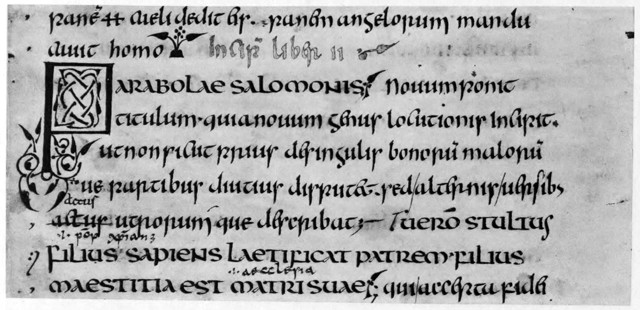 panē caeli dedit panem angelorum mandu
cauit homo Incip̄ liber II
PARABOLAE SALOMONIS; Nouum ponit
titulum. quia nouum genus locutionis incipit.
ut non sicut prius de singulis bonorū malorū
que partibus diutius disputet. sed alternis uersibus
actus utriorum que describat; UERŌ STULTUS
FILIUS SAPIENS LAETIFICAT PATREM. FILIUS
.i. aecclesia
MAESTITIA EST MATRI SUAE; qui accepta fidei